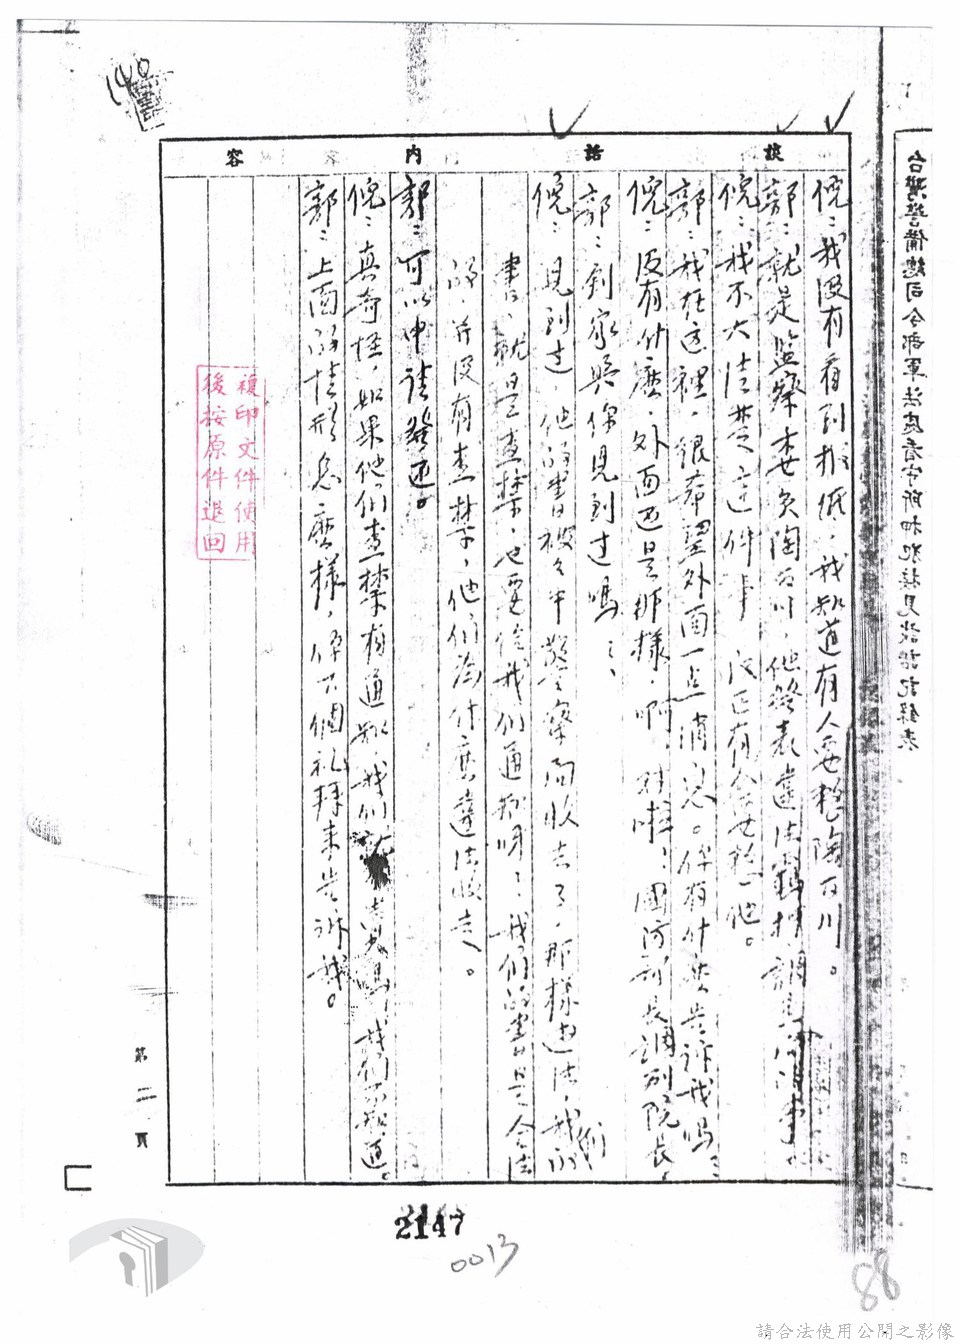 140
談話內容
倪：我沒有看到報紙，我知道有人要整陶百川。
郭：就是監察委員陶百川，他發表違法
倪：我不大清楚這件事，反正有人
郭：我在這裡，很希望外面一点消息。你有什麼告訴我嗎：
倪：沒有什麼，外面還是那樣，啊，對啦，國防部長調到院長。
郭：到家興你見到过嗎：、
倪：見到过，他的書被
警察 收去了，那樣違法，我們的
書，就是查禁，也要給我們通知呀：我們的書是合法
的，并沒有查禁，他們為什麼違法收去。
郭：可以申請發还。
倪：真奇怪，如果他們查禁有通知，我們 我們不知道。
郭：上面的情形怎麼樣，你下個礼拜來告訴我。
複印文件使用
後按原件退回
第二頁
台灣警備總司令部軍法處看守所押犯接見談話記錄表
2147
0013
88
請合法使用公開之影像